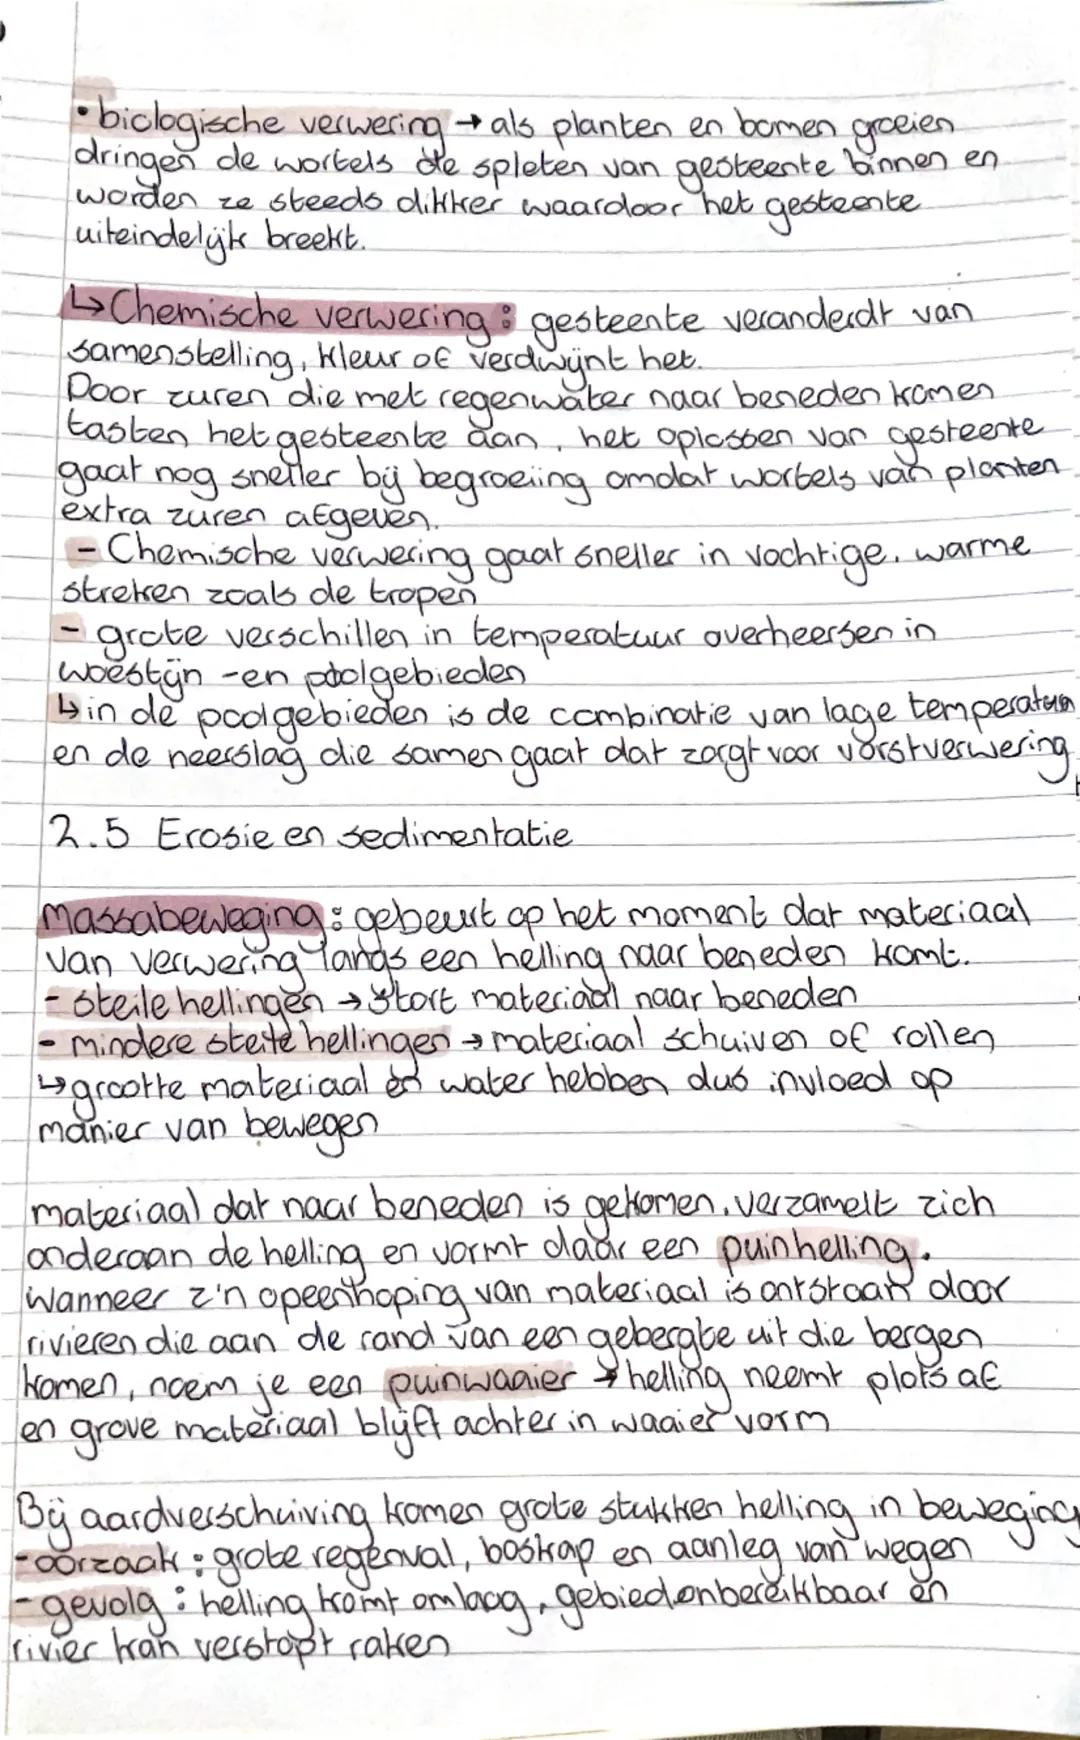 • biologische verwering → als planten en bomen groeien
dringen de wortels de spleten van gesteente binnen en
worden ze steeds dikker waardoor het gesteente
uiteindelijk breekt.
↳ Chemische verwering : gesteente veranderdt van
samenstelling, kleur of verdwijnt het.
Door zuren die met regenwater naar beneden komen
tasten het gesteente aan, het oplossen van gesteente
gaat nog sneller bij begroeiing omdat wortels van planten
extra zuren afgeven.
- Chemische verwering gaat sneller in vochtige, warme
streken zoals de tropen
- grote verschillen in temperatuur overheersen in
woestijn -en poolgebieden
↳ in de poolgebieden is de combinatie van lage temperatuur
en de neerslag die samen gaat dat zorgt voor vorstverwering
2.5 Erosie en sedimentatie
Massabeweging : gebeurt op het moment dat materiaal
van verwering langs een helling naar beneden komt.
- steile hellingen → stort materiaal naar beneden
- mindere steile hellingen → materiaal schuiven of rollen
↳ grootte materiaal en water hebben dus invloed op
manier van bewegen
materiaal dat naar beneden is gekomen, verzamelt zich
onderaan de helling en vormt daar een puinhelling.
Wanneer z'n opeenhoping van materiaal is ontstaan door
rivieren die aan de rand van een gebergte uit die bergen
komen, noem je een puinwaaier → helling neemt plots af
en grove materiaal blijft achter in waaier vorm
Bij aardverschuiving komen grote stukken helling in beweging
- oorzaak : grote regenval, boskap en aanleg van wegen
- gevolg : helling komt omlaag, gebieden bereikbaar en
rivier kan verstopt raken